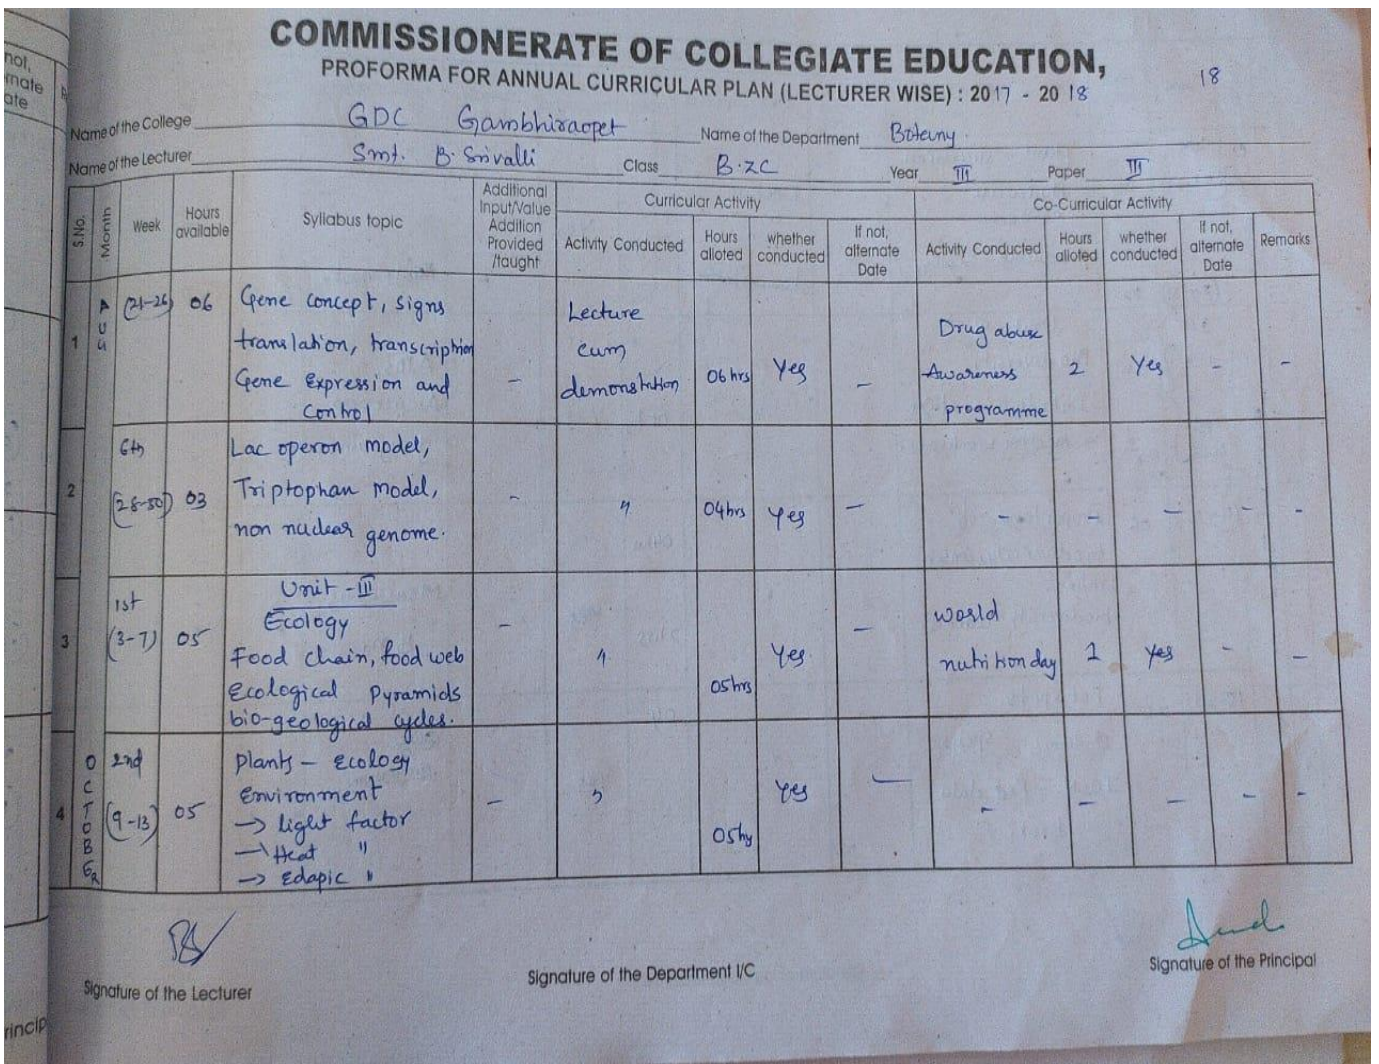 not,
mate
ate
COMMISSIONERATE OF COLLEGIATE EDUCATION,
PROFORMA FOR ANNUAL CURRICULAR PLAN (LECTURER WISE) : 2017 - 2018
18
Name of the College GDC Gambhiraopet Name of the Department Botany.
Name of the Lecturer Smt. B. Srivalli Class B.ZC Year III Paper III
S.No.
Month
Week
Hours available
Syllabus topic
Additional Input/Value Addition Provided /taught
Curricular Activity
Activity Conducted
Hours alloted
whether conducted
If not, alternate Date
Co-Curricular Activity
Activity Conducted
Hours alloted
whether conducted
If not, alternate Date
Remarks
1 AUG (21-26) 06
Gene concept, signs
translation, transcription
Gene Expression and
Control
-
Lecture
cum
demonstration
06 hrs Yes -
Drug abuse
Awareness
programme
2 Yes - -
2 6th
(28-30) 03
Lac operon model,
Triptophan model,
non nuclear genome.
- " 04 hrs Yes - - - - - -
3 1st
(3-7) 05
Unit - III
Ecology
Food chain, food web
Ecological Pyramids
bio-geological cycles.
- " 05 hrs Yes. -
world
nutrition day
yes - -
4 OCTOBER 2nd
(9-13) 05
plants - Ecology
Environment
-> light factor
-> Heat "
-> Edapic "
- " Yes - - - - - -
Signature of the Lecturer
Signature of the Department I/C
Signature of the Principal
rincip